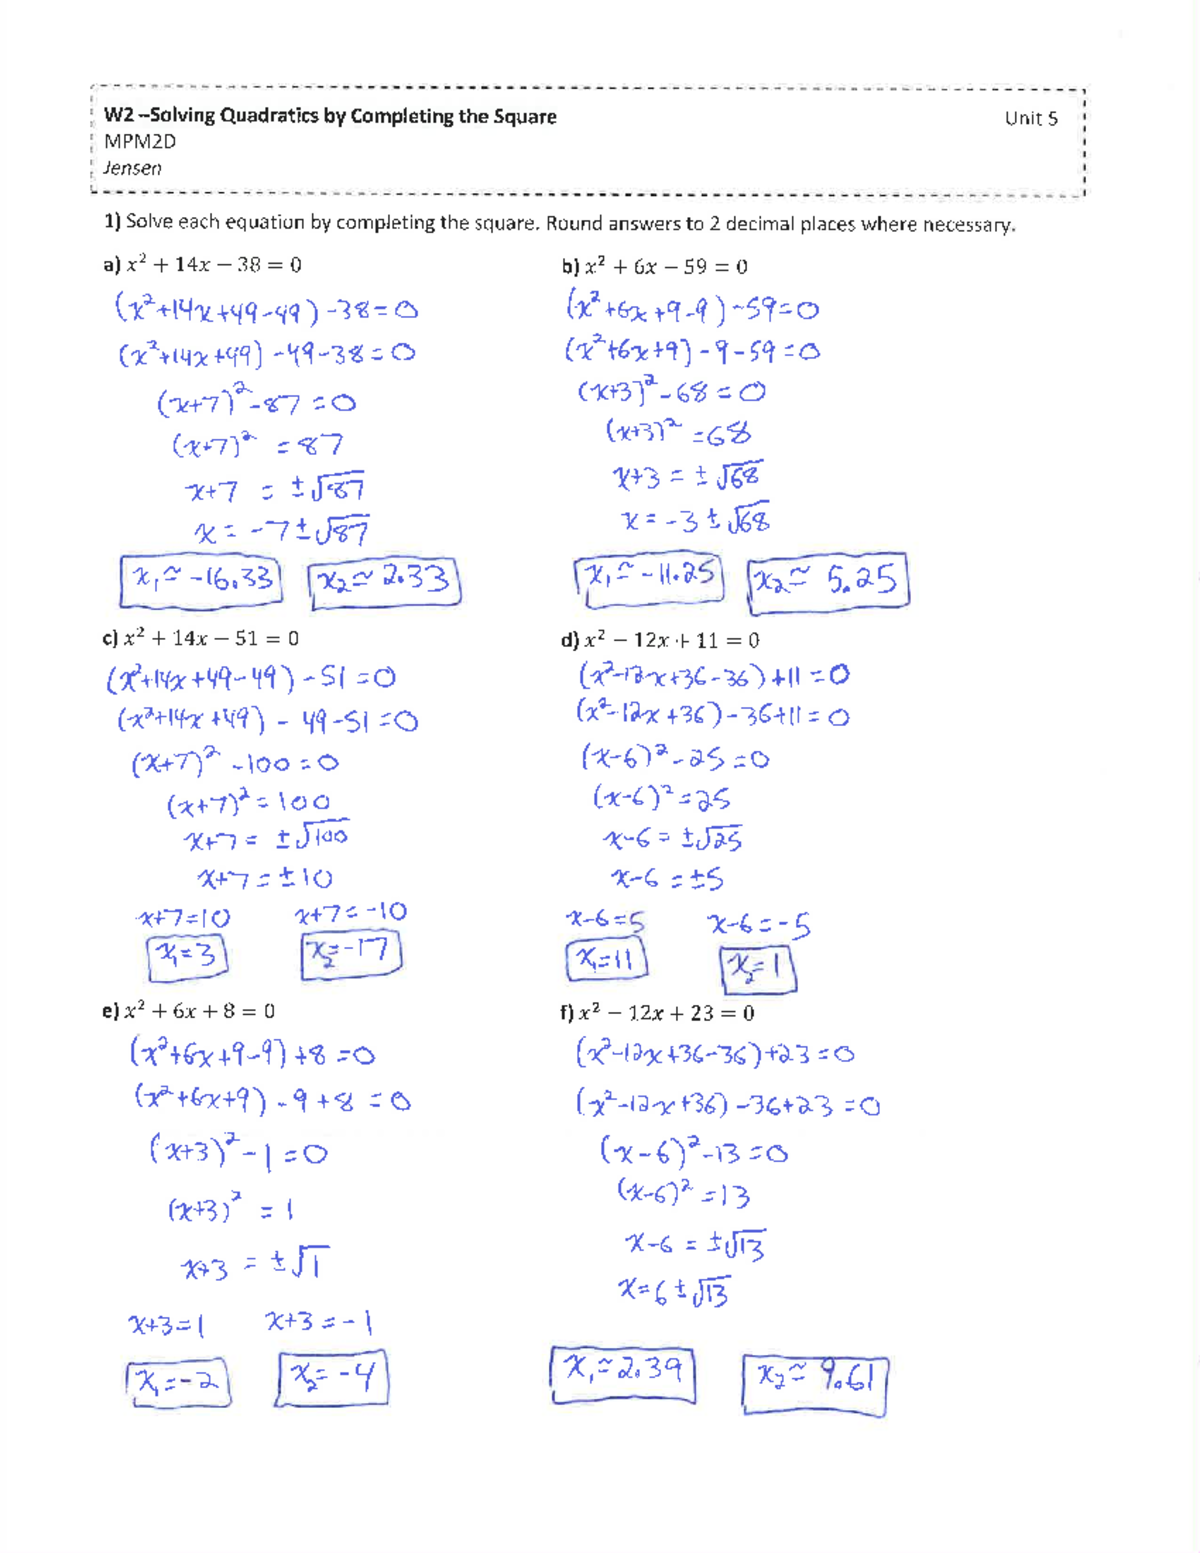 W2 –Solving Quadratics by Completing the Square Unit 5
MPM2D
Jensen
1) Solve each equation by completing the square. Round answers to 2 decimal places where necessary.
a) x² + 14x − 38 = 0
(x²+14x+49-49)-38=0
(x²+14x+49)-49-38=0
(x+7)²-87=0
(x+7)²=87
x+7=±√87
x=-7±√87
x₁≃-16.33 x₂≃2.33
b) x² + 6x − 59 = 0
(x²+6x+9-9)-59=0
(x²+6x+9)-9-59=0
(x+3)²-68=0
(x+3)²=68
x+3=±√68
x=-3±√68
x₁≃-11.25 x₂≃5.25
c) x² + 14x − 51 = 0
(x²+14x+49-49)-51=0
(x²+14x+49)-49-51=0
(x+7)²-100=0
(x+7)²=100
x+7=±√100
x+7=±10
x+7=10 x+7=-10
x₁=3 x₂=-17
d) x² − 12x + 11 = 0
(x²-12x+36-36)+11=0
(x²-12x+36)-36+11=0
(x-6)²-25=0
(x-6)²=25
x-6=±√25
x-6=±5
x-6=5 x-6=-5
x₁=11 x₂=1
e) x² + 6x + 8 = 0
(x²+6x+9-9)+8=0
(x²+6x+9)-9+8=0
(x+3)²-1=0
(x+3)²=1
x+3=±√1
x+3=1 x+3=-1
x₁=-2 x₂=-4
f) x² − 12x + 23 = 0
(x²-12x+36-36)+23=0
(x²-12x+36)-36+23=0
(x-6)²-13=0
(x-6)²=13
x-6=±√13
x=6±√13
x₁≃2.39 x₂≃9.61